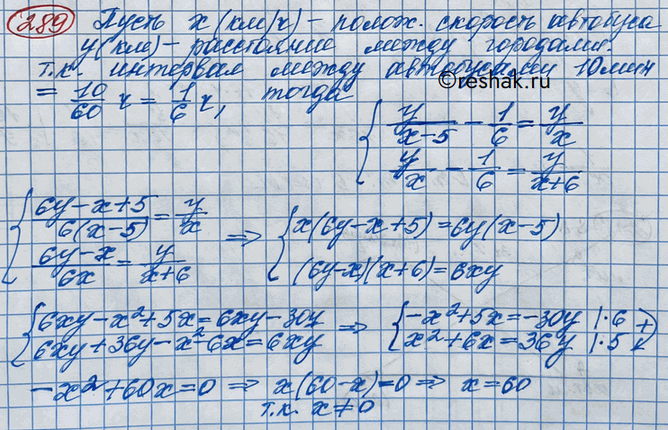 289 Пусть x (км/ч) – полож. скорость автобуса
y (км) – расстояние между городами.
т.к. интервал между автобусами 10 мин
= 10/60 ч = 1/6 ч, тогда
{ y/(x-5) - 1/6 = y/x
y/x - 1/6 = y/(x+6)
{ (6y-x+5)/(6(x-5)) = y/x
(6y-x)/(6x) = y/(x+6)
=> { x(6y-x+5) = 6y(x-5)
(6y-x)(x+6) = 6xy
{ 6xy-x²+5x = 6xy-30y
6xy+36y-x²-6x = 6xy
=> { -x²+5x = -30y |·6
x²+6x = 36y |·5 (+)
-x²+60x=0 => x(60-x)=0 => x=60
т.к. x≠0
reshak.ru